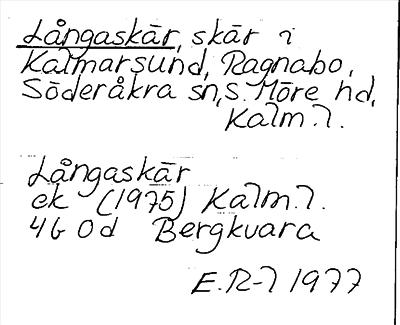 Långaskär, skär i
Kalmarsund, Ragnabo,
Söderåkra sn, S. Möre hd,
Kalm. l.
Långaskär
ek (1975) Kalm. l.
4G 0d Bergkvara
E.R-l 1977